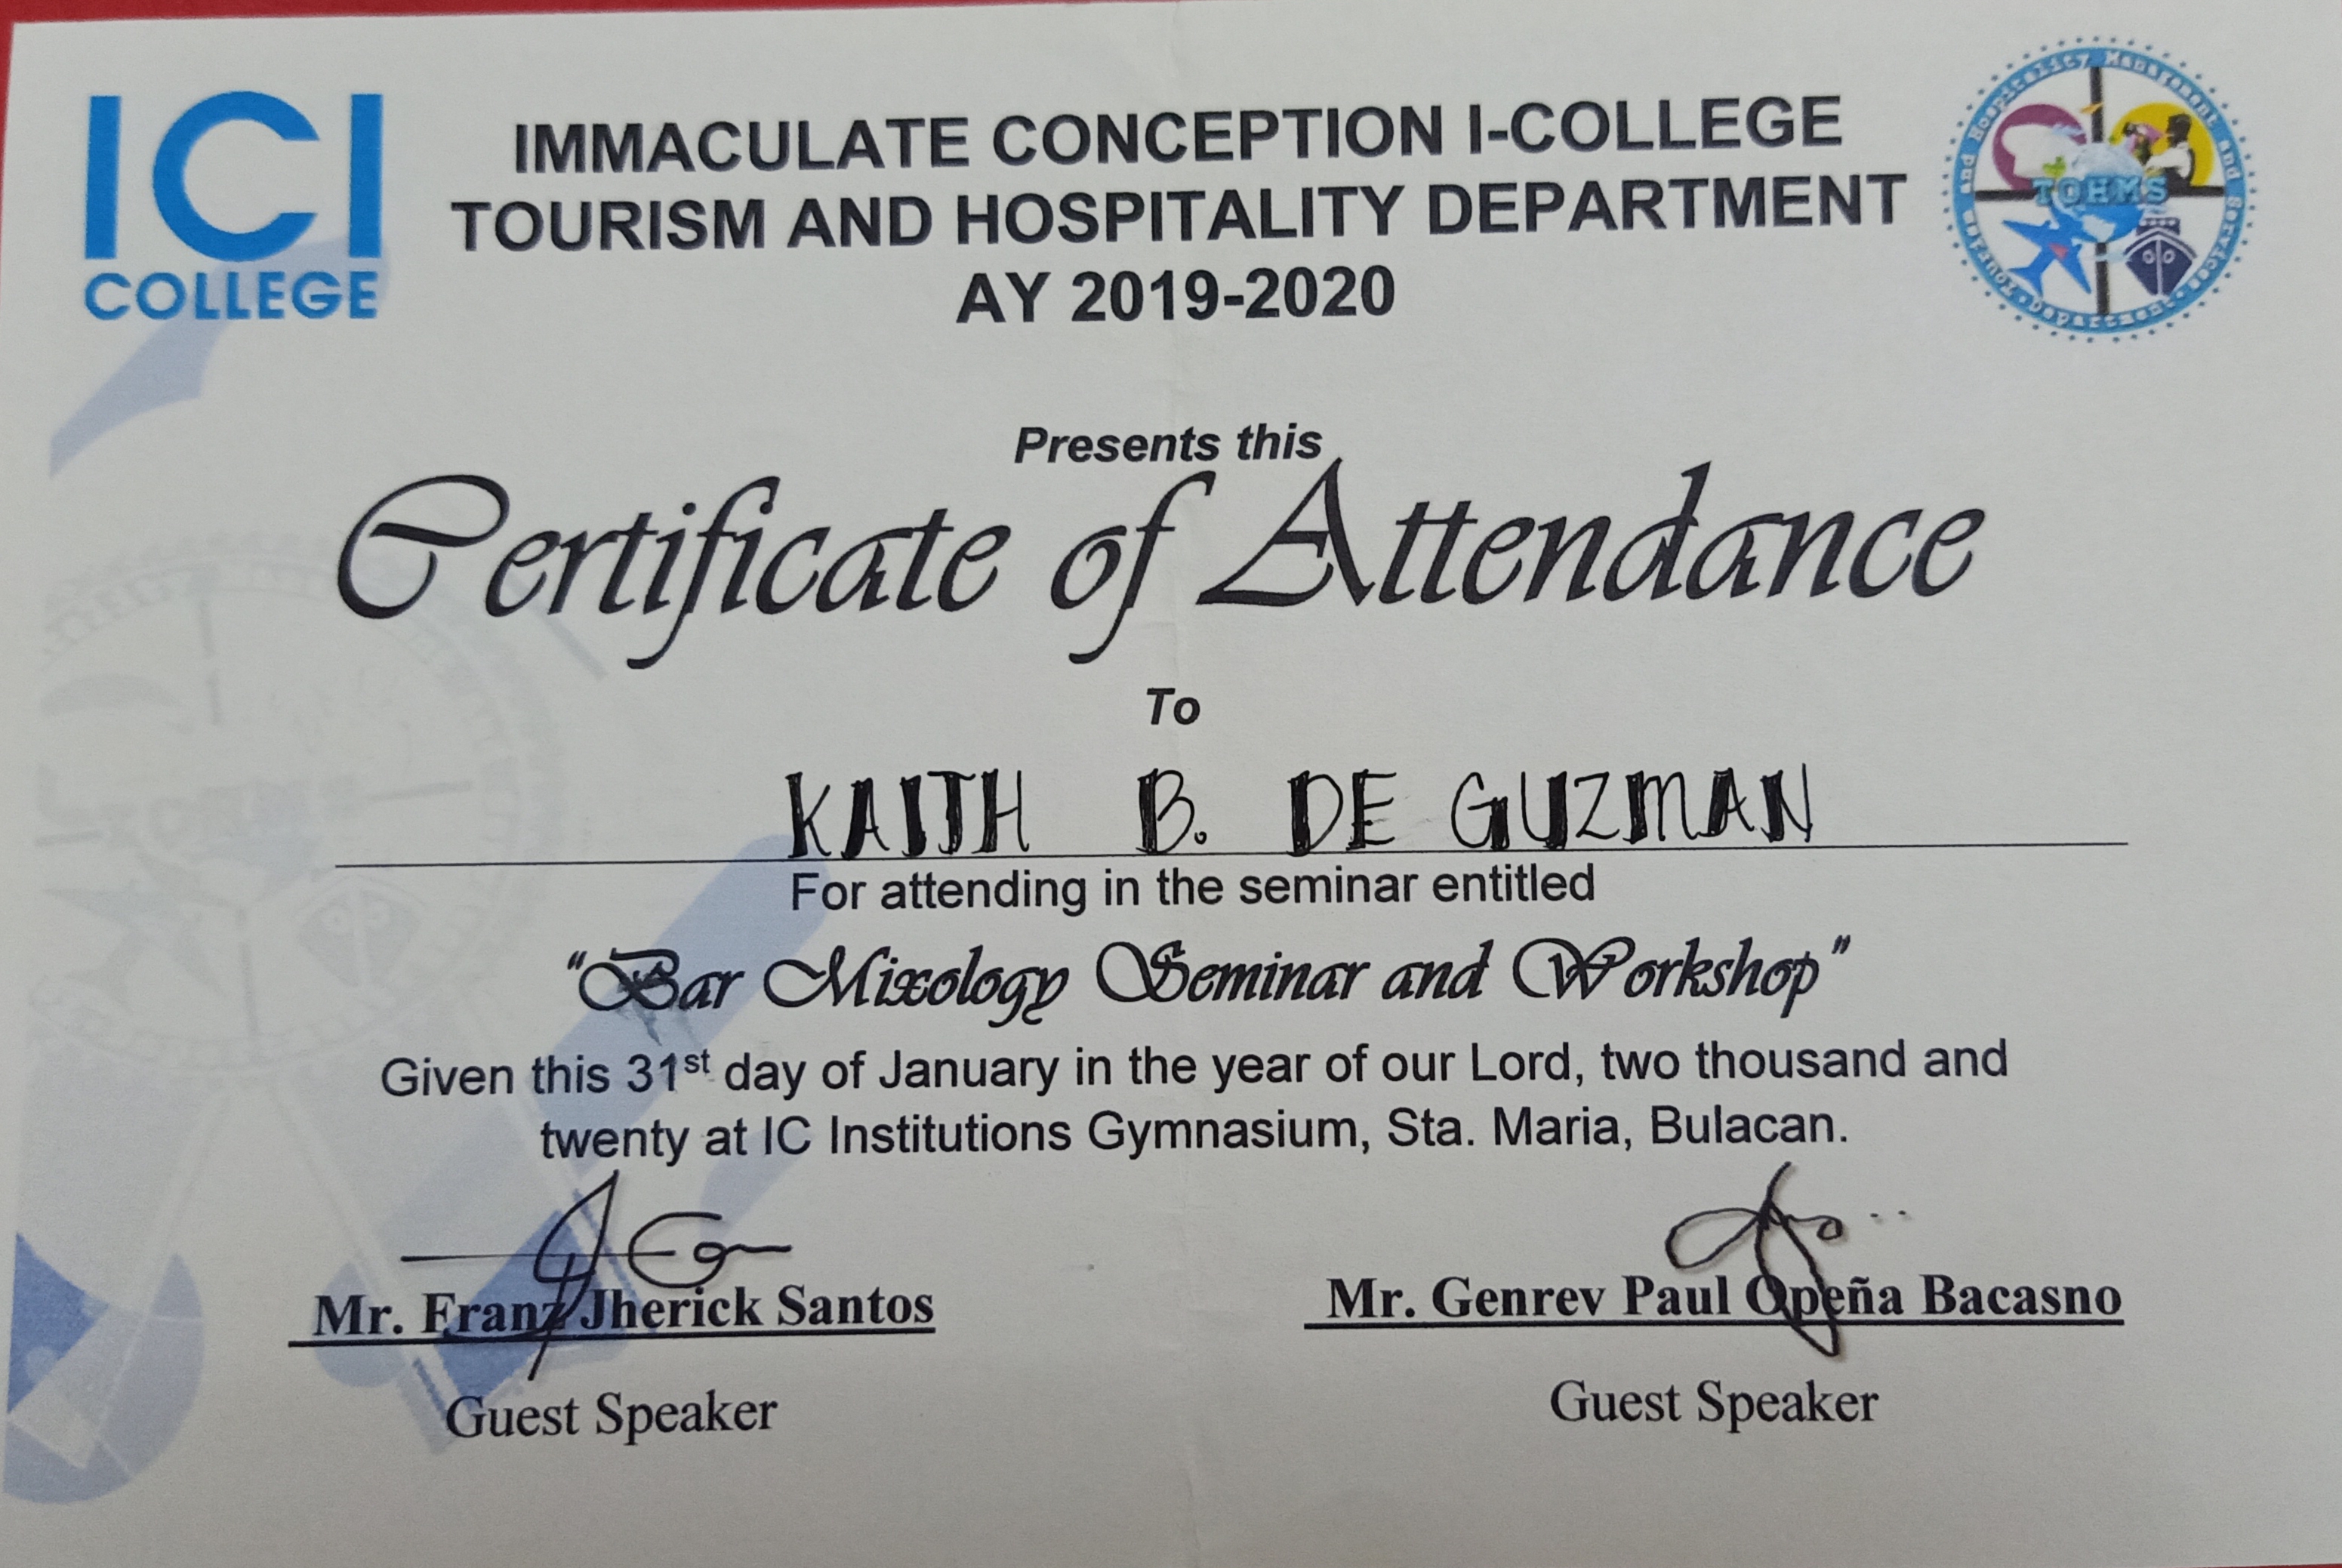 ICI
COLLEGE
IMMACULATE CONCEPTION I-COLLEGE
TOURISM AND HOSPITALITY DEPARTMENT
AY 2019-2020
Tourism and Hospitality Management and Services Department
TOHMS
Presents this
Certificate of Attendance
To
KAITH B. DE GUZMAN
For attending in the seminar entitled
"Bar Mixology Seminar and Workshop"
Given this 31st day of January in the year of our Lord, two thousand and
twenty at IC Institutions Gymnasium, Sta. Maria, Bulacan.
Mr. Franz Jherick Santos
Guest Speaker
Mr. Genrev Paul Opeña Bacasno
Guest Speaker